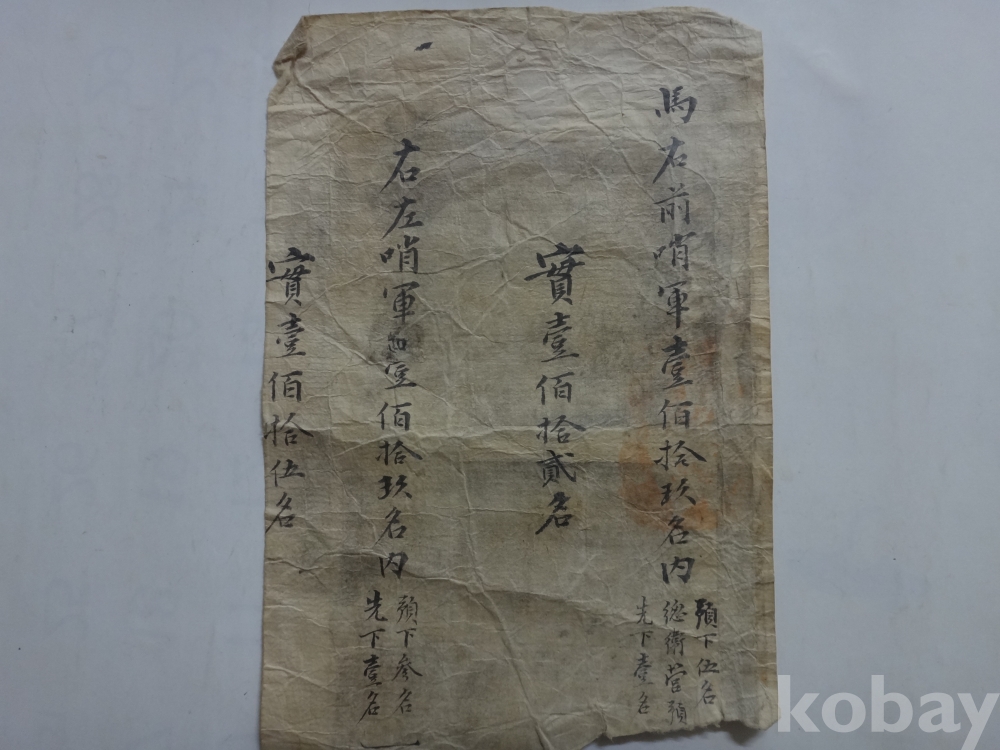 馬右前哨軍壹佰拾玖名內
預下伍名
總衛營預
先下壹名
實壹佰拾貳名
右左哨軍壹佰拾玖名內
預下參名
先下壹名
實壹佰拾伍名
kobay